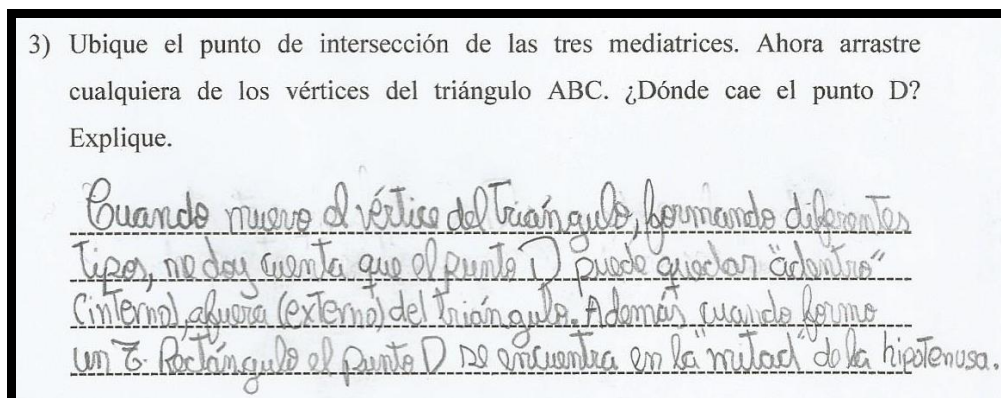 3) Ubique el punto de intersección de las tres mediatrices. Ahora arrastre
cualquiera de los vértices del triángulo ABC. ¿Dónde cae el punto D?
Explique.
Cuando muevo el vértice del Triángulo, formando diferentes
Tipos, me doy cuenta que el punto D puede quedar "adentro"
(interno), afuera (externo) del triángulo. Además cuando formo
un T. Rectángulo el punto D se encuentra en la "mitad" de la hipotenusa.